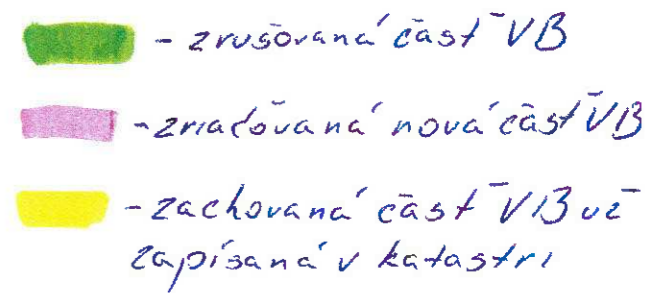 - zrušovaná časť VB
- zriaďovaná nová časť VB
- zachovaná časť VB už
zapísaná v katastri